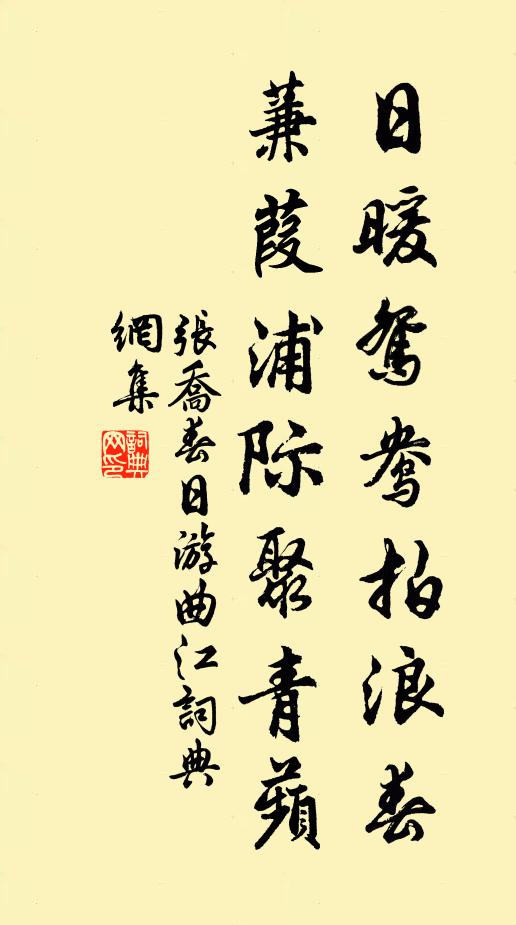 日暖鴛鴦拍浪春
蒹葭浦际聚青蘋
張喬春日游曲江詞典
網集
詞典網印